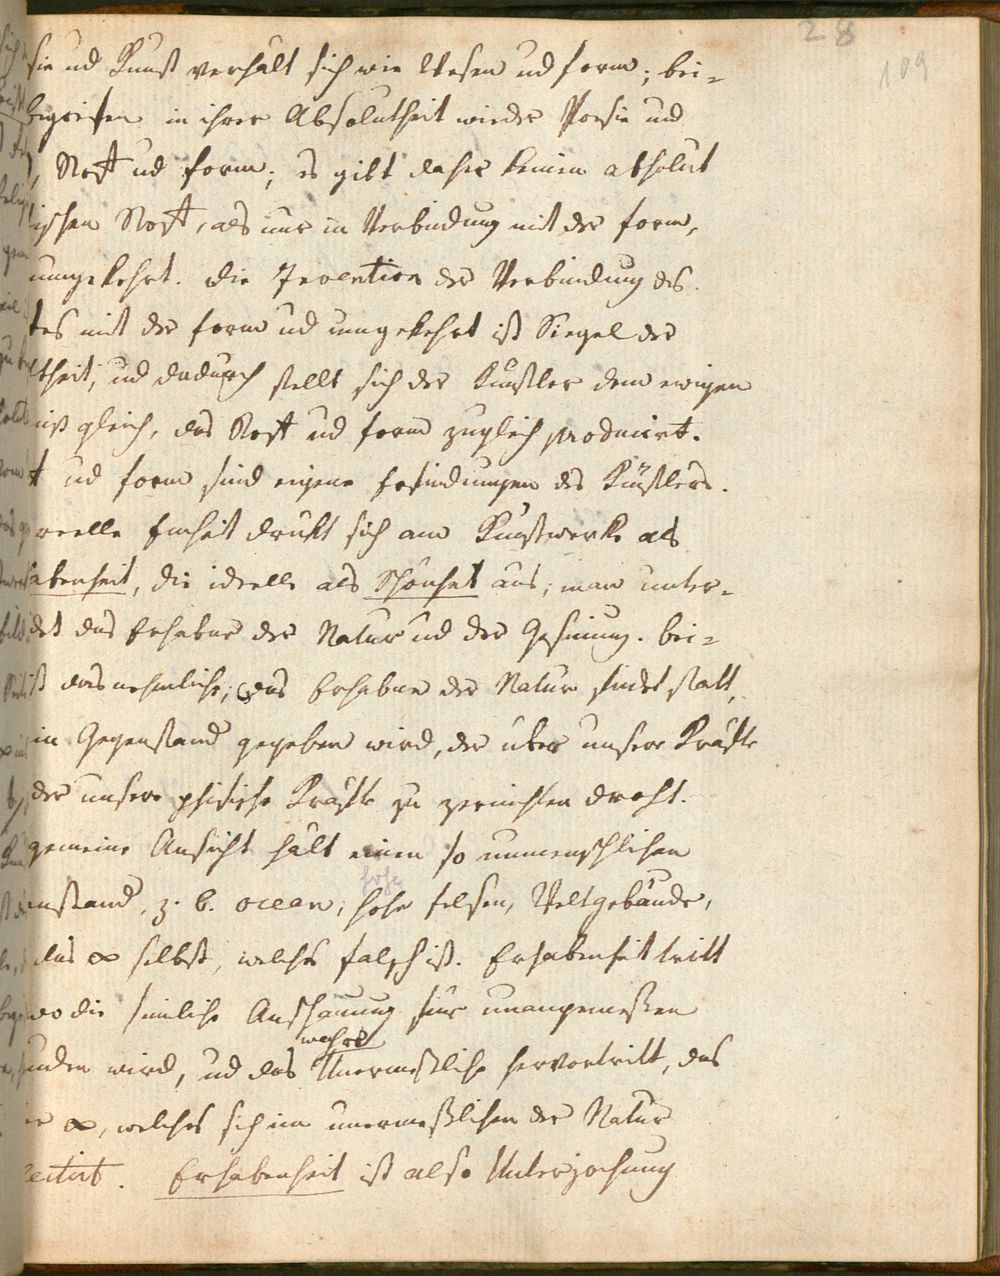 28
109
sie ud Kunst verhält sich wie Wesen ud form; bei-
begreifen in ihrer Absolutheit wieder Poesie und
, Stoff ud form; es gibt daher keinen absolut
ischen Stoff, als nur in Verbindung mit der form,
umgekehrt. Die Invention der Verbindung des
tes mit der form ud umgekehrt ist Siegel der
theit, ud dadurch stellt sich der Künstler dem ewigen
niß gleich, das Stoff ud form zugleich producirt.
ud form sind eigene Erfindungen des Künstlers.
reelle Einheit drükt sich am Kunstwerke als
abenheit, die ideelle als Schönheit aus; man unter-
det das Erhabne der Natur ud der Gesinnung. bei-
ist das nehmliche; das Erhabne der Natur findet statt,
in Gegenstand gegeben wird, der über unsere Kräfte
der unsere phisische Kräfte zu zernichten droht.
gemeine Ansicht hält einen so unmenschlichen
hohe
enstand, z. b. ocean, hohe felsen, Weltgebäude,
das ∞ selbst, welches falsch ist. Erhabenheit tritt
wo die sinnliche Anschauung für unangemeßen
wahre
unden wird, ud das Unermeßliche hervortritt, das
∞, welches sich im unermeßlichen der Natur
Erhabenheit ist also Unterjochung